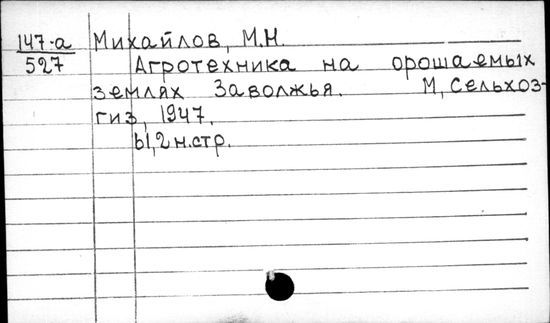 147-а Михайлов, М.Н.
527 Агротехника на орошаемых
землях Заволжья. М, Сельхоз-
гиз, 1947.
61,2 н.стр.